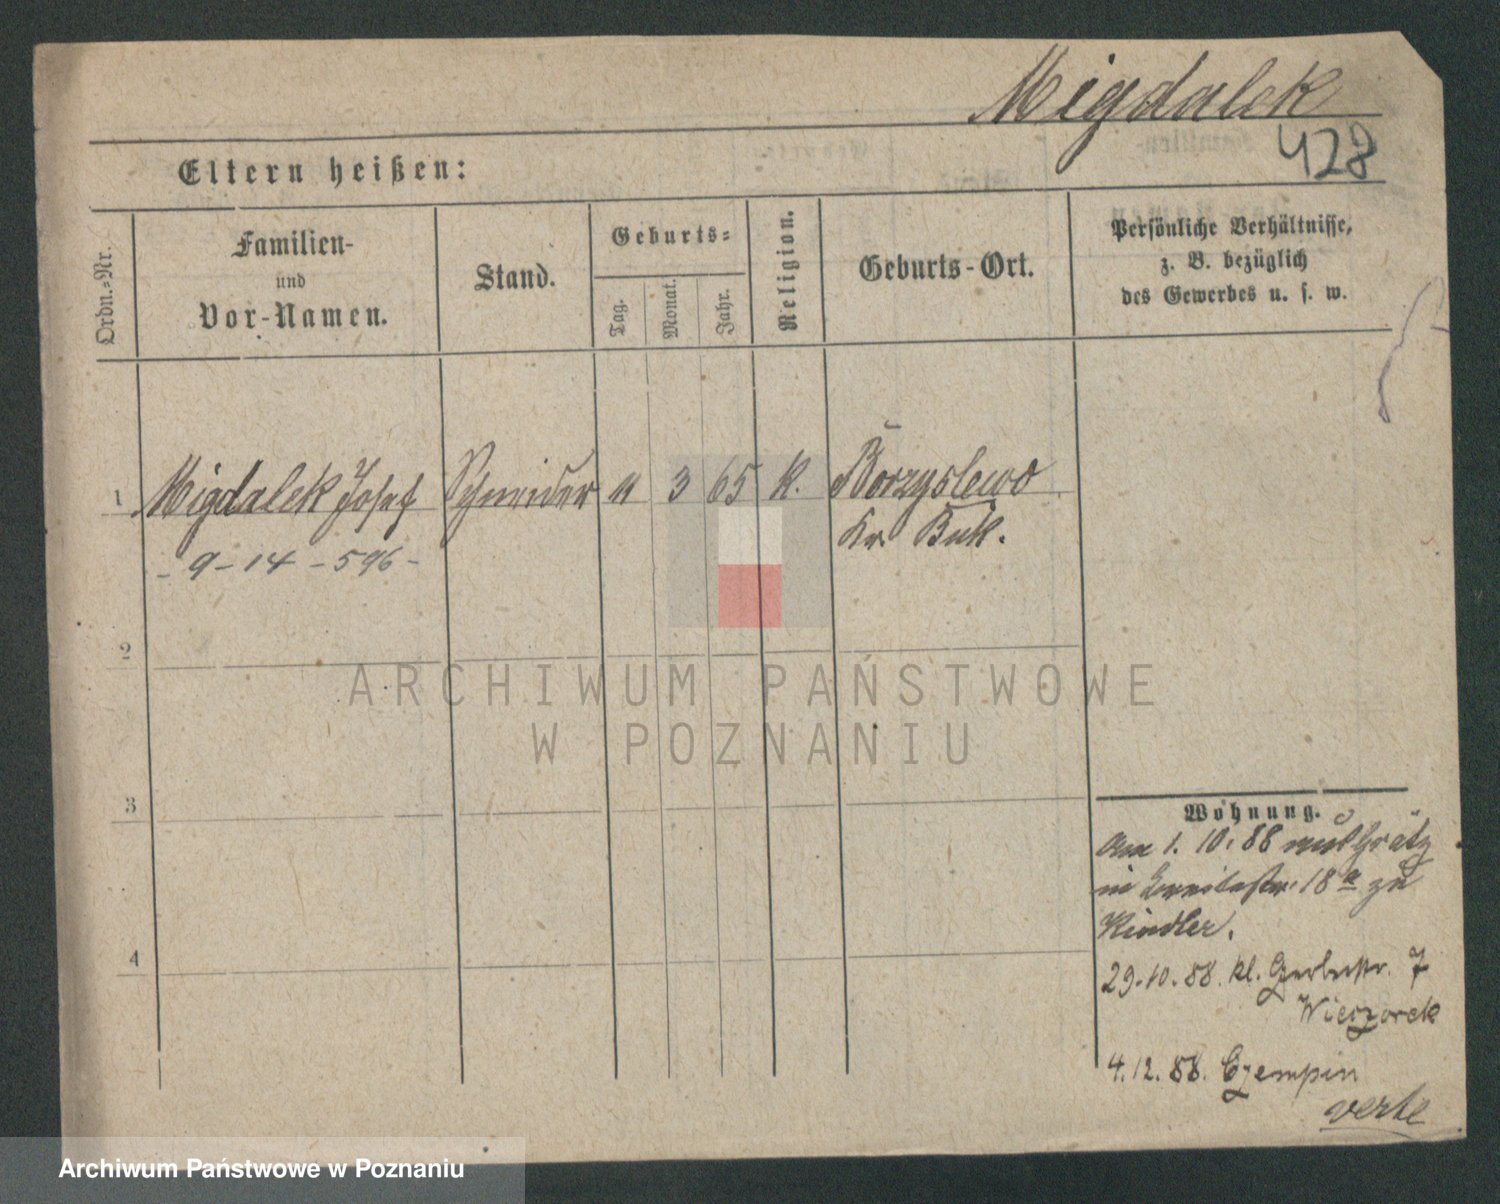 Migdalek
428
Eltern heißen:
Ordn.=Nr.
Familien-
und
Vor-Namen.
Stand.
Geburts=
Tag.
Monat.
Jahr.
Religion.
Geburts-Ort.
Persönliche Verhältnisse,
z. B. bezüglich
des Gewerbes u. s. w.
1 Migdalek Josef Schneider 11 3 65 K. Borzyslewo
Kr. Buk.
- 9 - 14 - 596 -
2
3
4
Wohnung.
Am 1. 10. 88 aus Grätz
in 18 a zu
Kindler.
29.10.88. kl. Gerberstr. 7
Wieczorek
4.12.88. Czempin
verte
ARCHIWUM PAŃSTWOWE
W POZNANIU
Archiwum Państwowe w Poznaniu